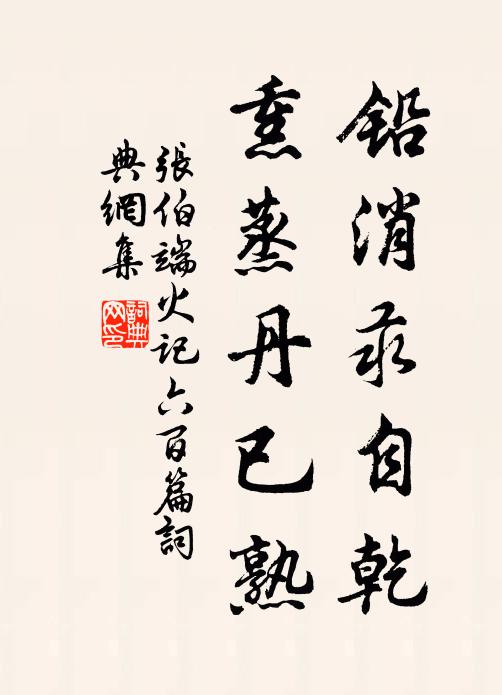 鉛消汞自乾
熏蒸丹已熟
張伯端火記六百篇詞
典網集
詞典
网印